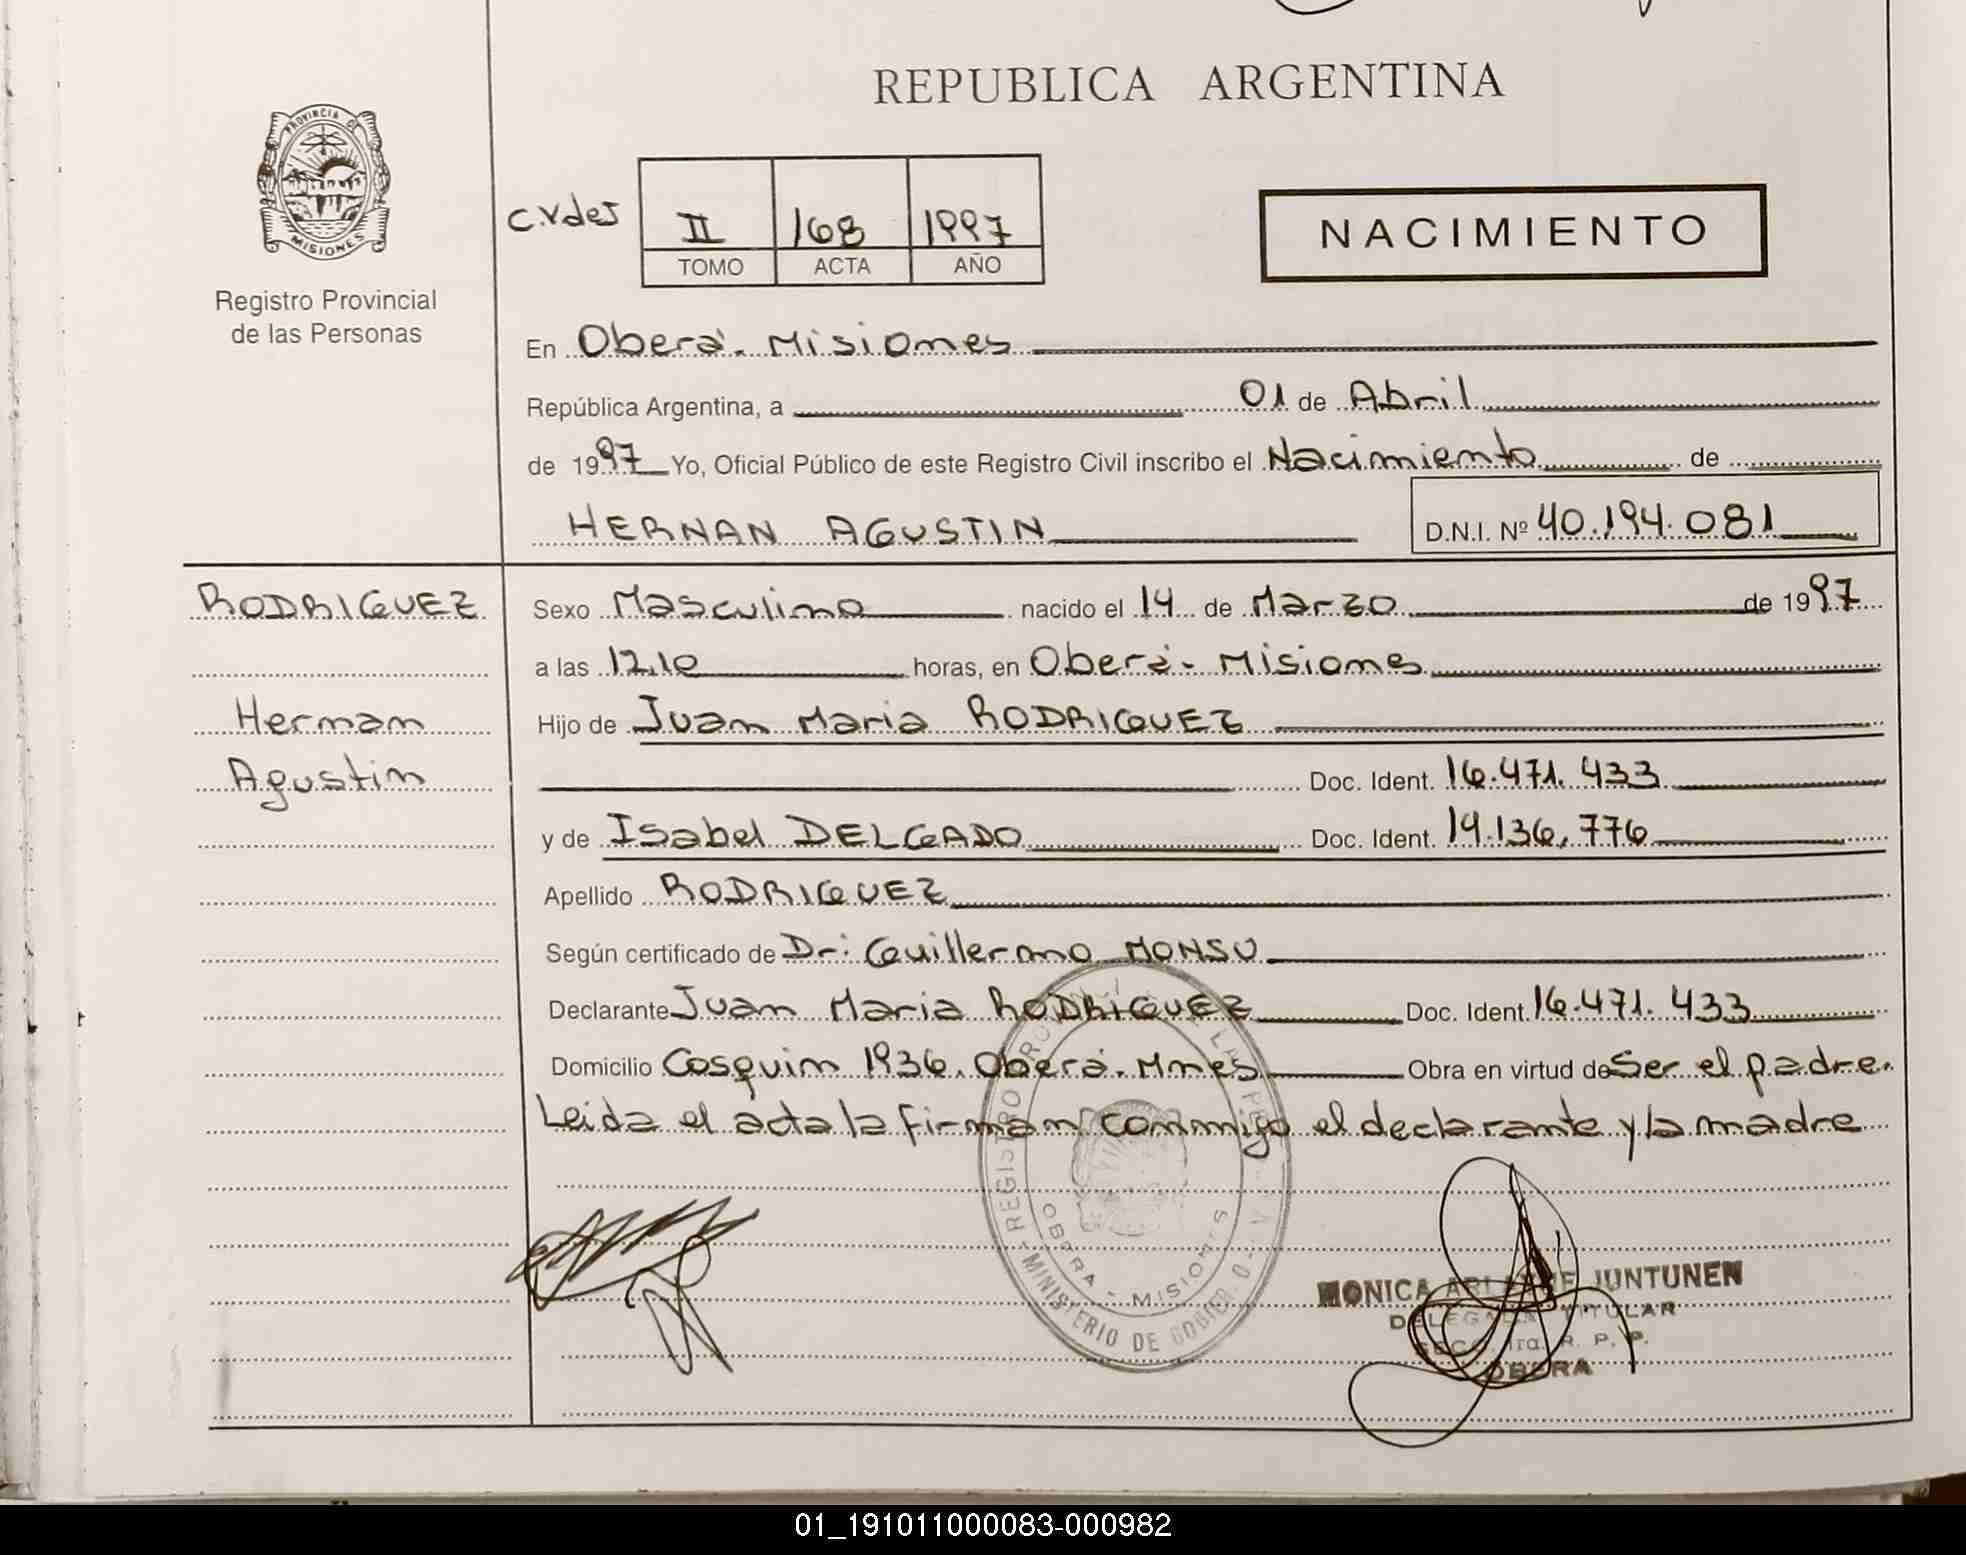 REPUBLICA ARGENTINA
PROVINCIA DE
MISIONES
Registro Provincial
de las Personas
II 168 1997
TOMO ACTA AÑO
NACIMIENTO
En Oberá. Misiones
República Argentina, a 01 de Abril
de 1997 Yo, Oficial Público de este Registro Civil inscribo el Nacimiento de
HERNAN AGUSTIN D.N.I. Nº 40.194.081
RODRIGUEZ
Hernan
Agustin
Sexo Masculino nacido el 14 de Marzo de 1997
a las 12.10 horas, en Oberá - Misiones
Hijo de Juan Maria RODRIGUEZ
Doc. Ident. 16.471.433
y de Isabel DELGADO Doc. Ident. 14.136,776
Apellido RODRIGUEZ
Según certificado de Dr: Guillermo MONSU
Declarante Juan Maria RODRIGUEZ Doc. Ident. 16.471.433
Domicilio Cosquin 1936. Oberá. Mnes Obra en virtud de Ser el padre.
Leida el acta la firman conmigo el declarante y la madre
REGISTRO
MINISTERIO DE
OBERA - MISIONES
MONICA JUNTUNEN
TITULAR
R. P. P.
OBERA
01_191011000083-000982